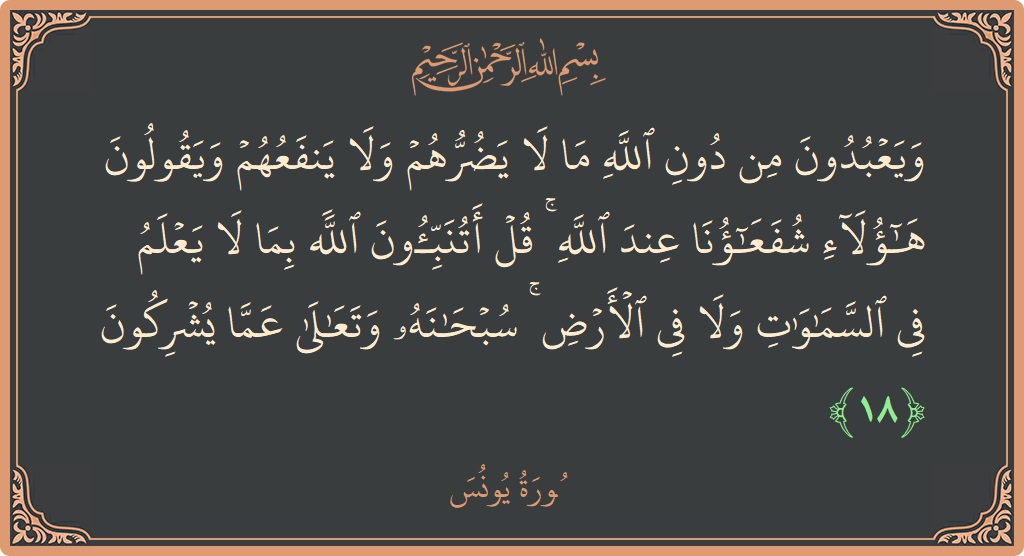 بِسْمِ اللهِ الرَّحْمٰنِ الرَّحِيْمِ
وَيَعْبُدُونَ مِن دُونِ ٱللَّهِ مَا لَا يَضُرُّهُمْ وَلَا يَنفَعُهُمْ وَيَقُولُونَ
هَـٰٓؤُلَآءِ شُفَعَـٰٓؤُنَا عِندَ ٱللَّهِ ۚ قُلْ أَتُنَبِّـُٔونَ ٱللَّهَ بِمَا لَا يَعْلَمُ
فِى ٱلسَّمَـٰوَٰتِ وَلَا فِى ٱلْأَرْضِ ۚ سُبْحَـٰنَهُۥ وَتَعَـٰلَىٰ عَمَّا يُشْرِكُونَ
﴿١٨﴾
سُورَةُ يُونُسَ